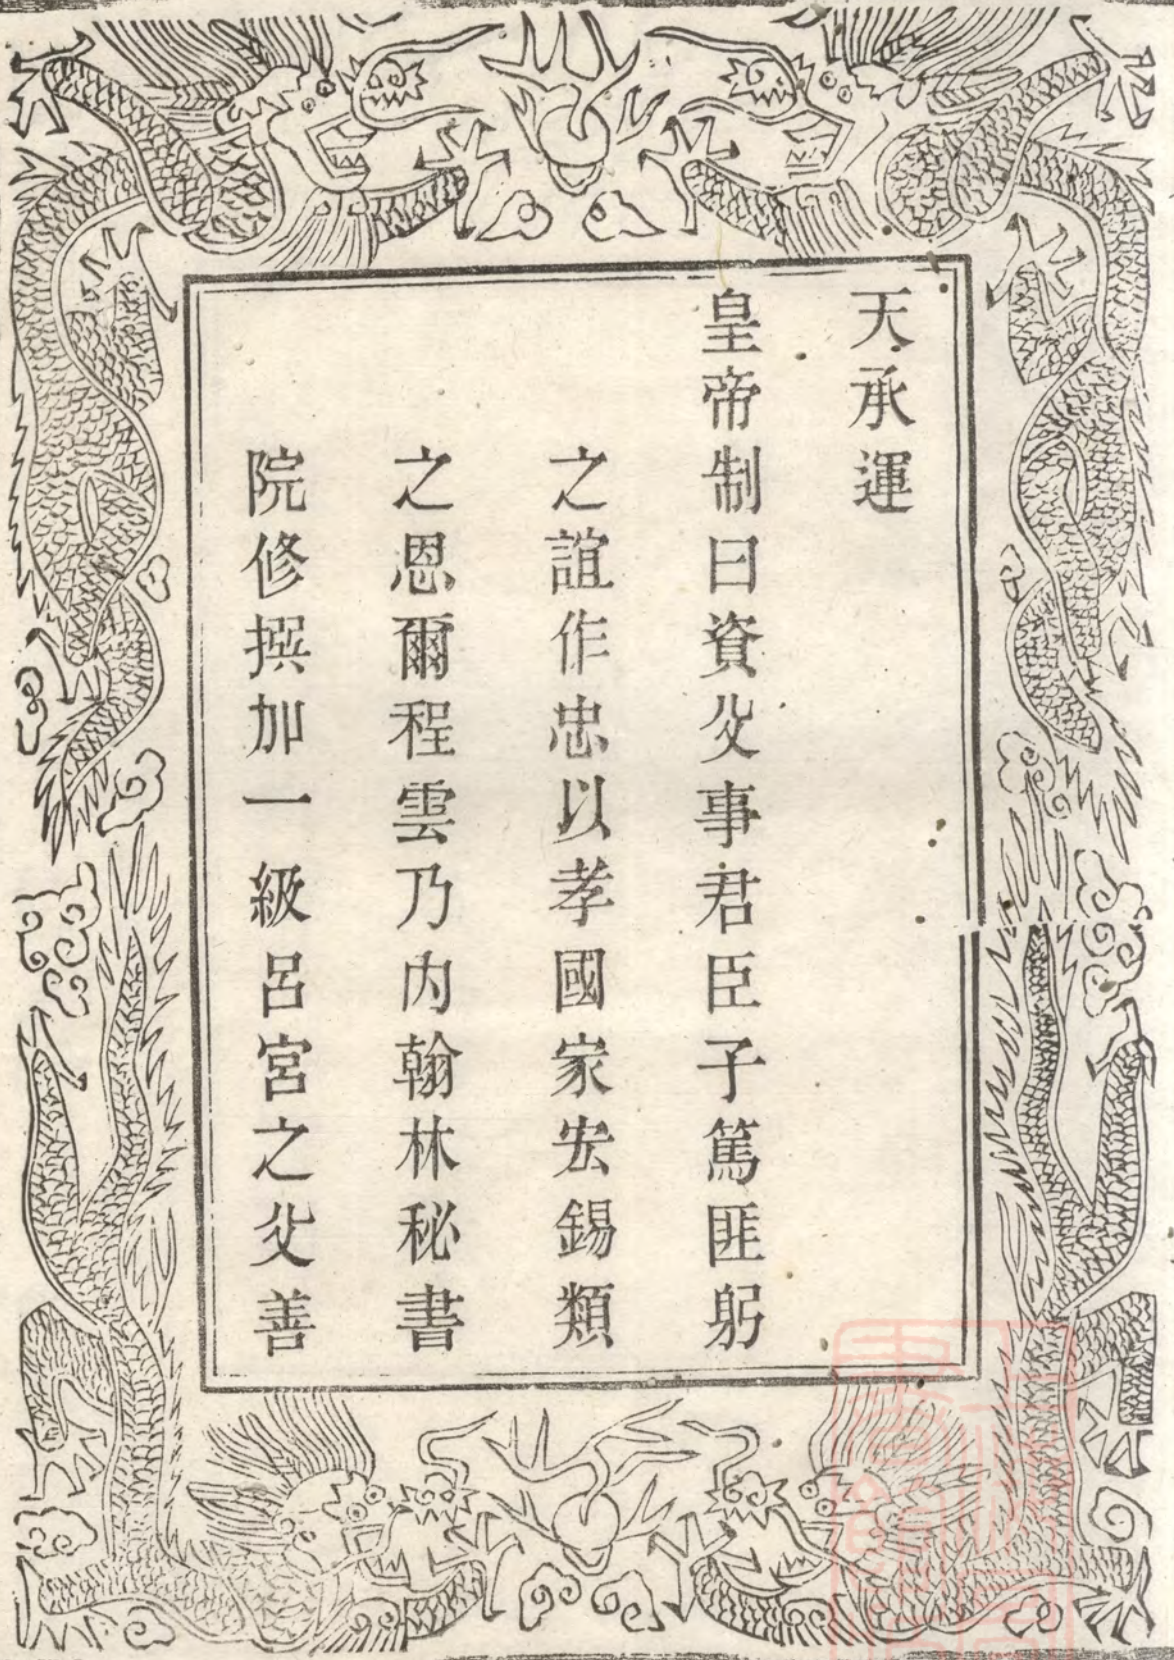 天承運
皇帝制曰資父事君臣子篤匪躬
之誼作忠以孝國家宏錫類
之恩爾程雲乃內翰林秘書
院修撰加一級呂宮之父善